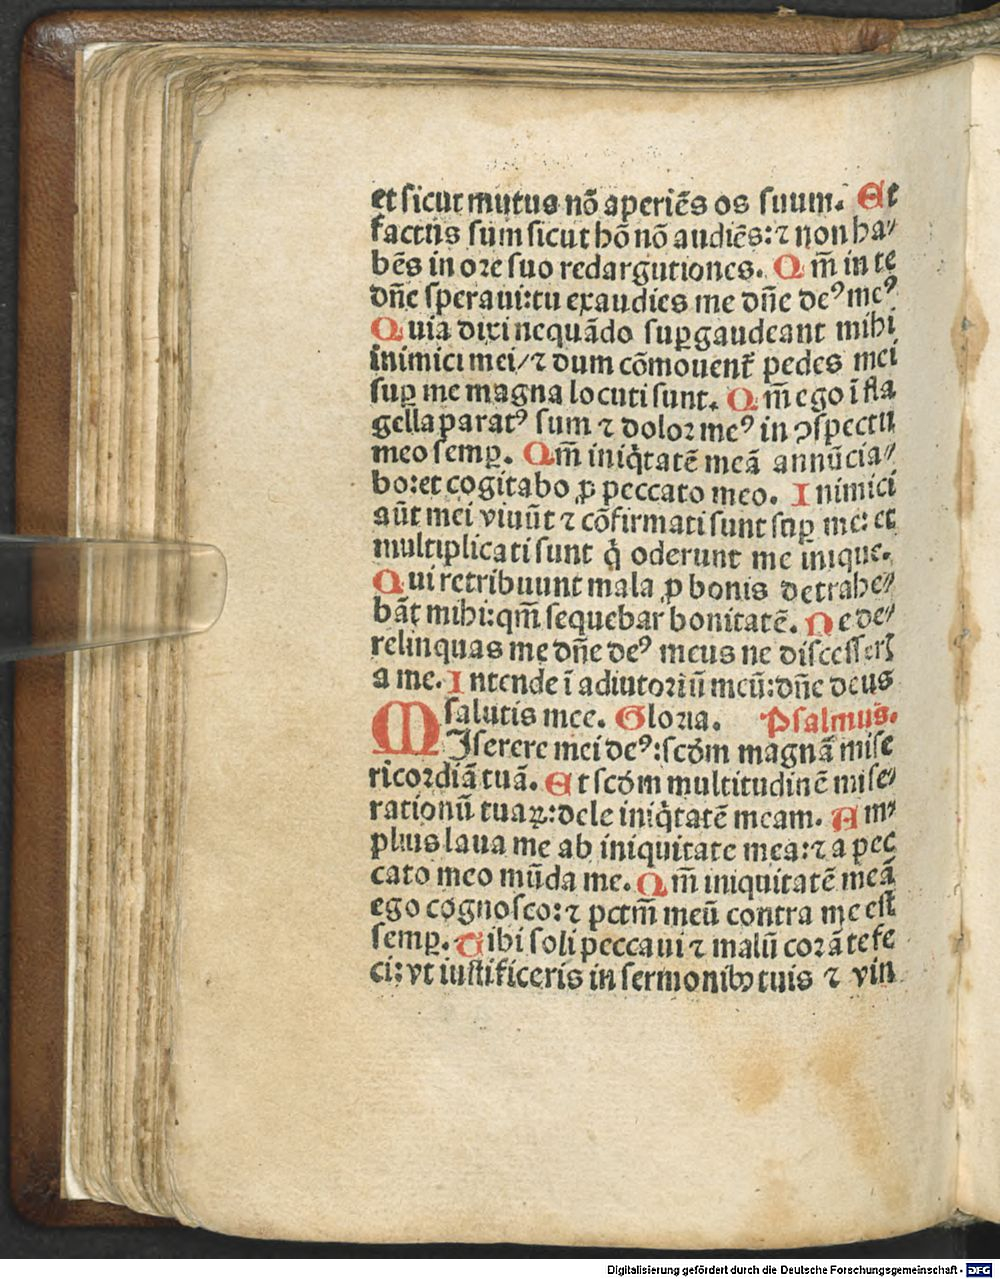 et sicut mutus nō aperiēs os suum. Et
factus sum sicut hō nō audiēs: ⁊ non ha⸗
bēs in ore suo redargutiones. Qm̄ in te
dn̄e speraui: tu exaudies me dn̄e deꝰ meꝰ
Quia dixi nequādo suꝑgaudeant mihi
inimici mei/ ⁊ dum cōmouent᷑ pedes mei
suꝑ me magna locuti sunt. Qm̄ ego ī fla
gella paratꝰ sum ⁊ dolor meꝰ in ↄspectu
meo semꝑ. Qm̄ iniq̇tatē meā annūcia⸗
bo: et cogitabo ꝓ peccato meo. Inimici
aūt mei viuūt ⁊ cōfirmati sunt suꝑ me: et
multiplicati sunt q̇ oderunt me inique.
Qui retribuunt mala ꝓ bonis detrahe⸗
bāt mihi: qm̄ sequebar bonitatē. Ne de⸗
relinquas me dn̄e deꝰ meus ne discesserꝭ
a me. Intende ī adiutoriū meū: dn̄e deus
salutis mee. Gloria. Psalmus.
MIserere mei deꝰ: scd̄m magnā mise
ricordiā tuā. Et scd̄m multitudinē mise⸗
rationū tuaꝝ: dele iniq̇tatē meam. Am⸗
plius laua me ab iniquitate mea: ⁊ a pec
cato meo mūda me. Qm̄ iniquitatē meā
ego cognosco: ⁊ pctm̄ meū contra me est
semꝑ. Tibi soli peccaui ⁊ malū corā te fe
ci: vt iustificeris in sermonibꝰ tuis ⁊ vin
Digitalisierung gefördert durch die Deutsche Forschungsgemeinschaft - DFG